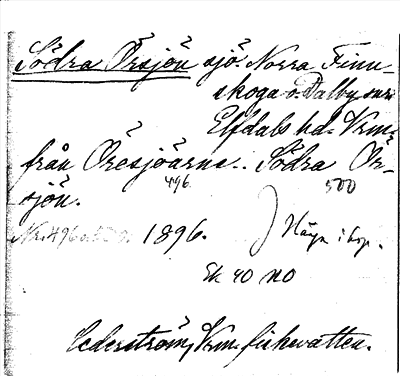 Södra Örsjön sjö Norra Finn-
skoga o. Dalby snr
Elfdals hd. Vrm.
från Öresjöarne.. Södra Ör-
496. 500
sjön.
Nr. 496 o. 1896.
Häga i hop.
Ek 40 NO
Cederström, Vrm. fiskevatten.